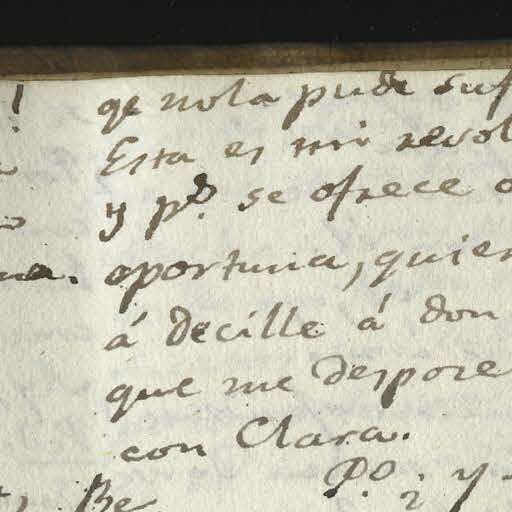 qe no la pude suf
Esta es mi resol
y pº. se ofrece o
oportuna, quier
á decille á don
que me despose
con Clara.
Pº. 2 y
Be